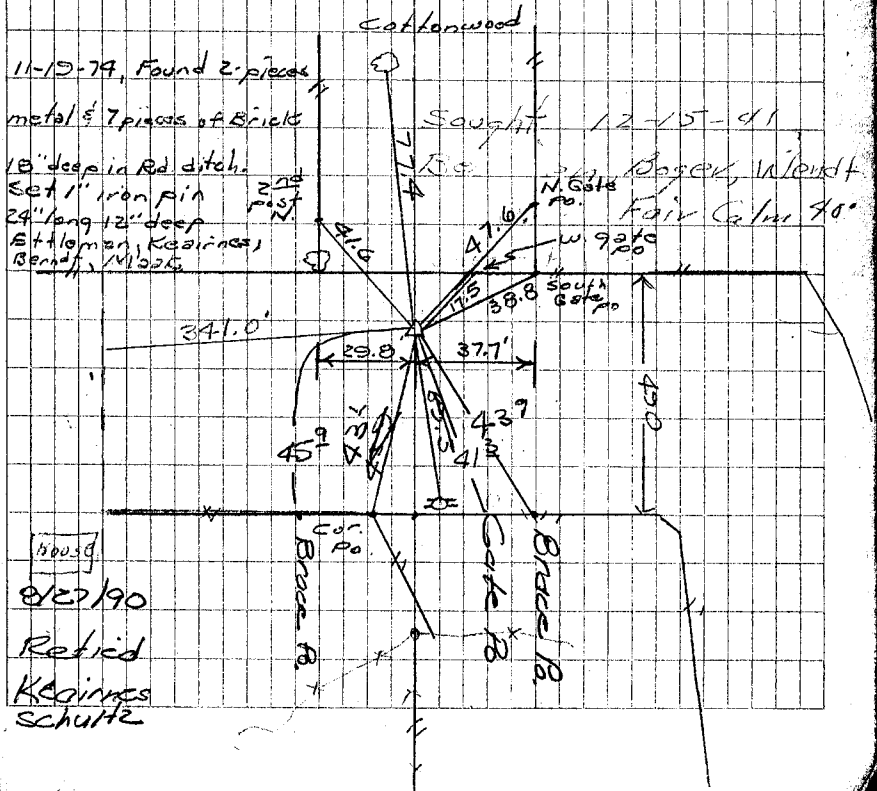 Cottonwood
11-19-74, Found 2 pieces
metal & 7 pieces of Brick
18" deep in Rd. ditch.
Set 1" iron pin
24" long 12" deep
Ettleman, Keairnes,
Berndt, Maak
2nd
post
N
Sought 12-15-41
Boger, Wendt
Fair Calm 40°
77.4
41.6
47.6
N. Gate
Po.
W. gate
po
17.5
38.8
South
Gate
po
341.0'
29.8
37.7'
490
45⁹
65.5
43⁹
41³
Cor.
Po.
Brace Po.
Gate Po
Brace Po.
house
8/27/90
Retied
Keairnes
Schultz